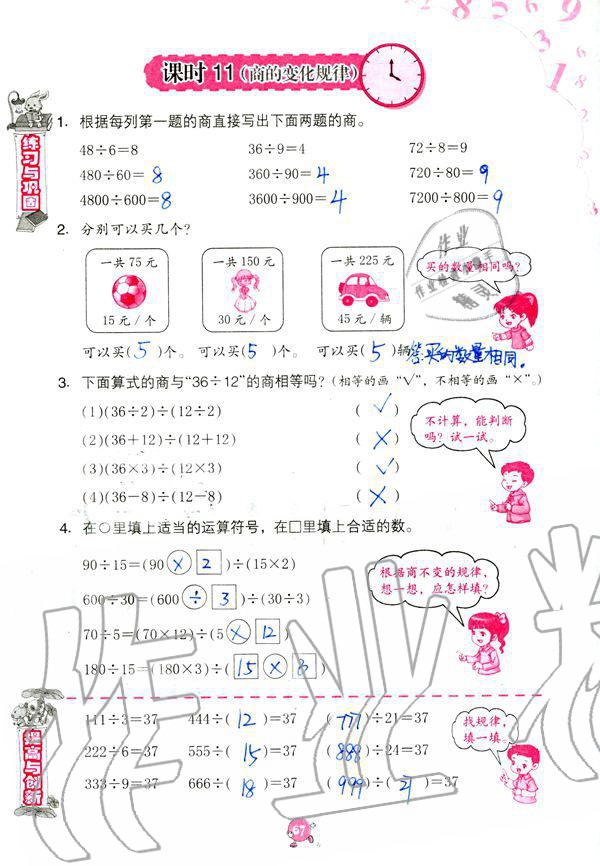 课时 11（商的变化规律）
练习与巩固
1. 根据每列第一题的商直接写出下面两题的商。
48÷6=8 36÷9=4 72÷8=9
480÷60=8 360÷90=4 720÷80=9
4800÷600=8 3600÷900=4 7200÷800=9
2. 分别可以买几个?
一共 75 元 一共 150 元 一共 225 元
15 元/个 30 元/个 45 元/辆
买的数量相同吗?
可以买(5)个。 可以买(5)个。 可以买(5)辆 答:买的数量相同。
3. 下面算式的商与“36÷12”的商相等吗? (相等的画“√”，不相等的画“×”。)
(1)(36÷2)÷(12÷2) (√)
(2)(36+12)÷(12+12) (×)
(3)(36×3)÷(12×3) (√)
(4)(36−8)÷(12−8) (×)
不计算，能判断吗? 试一试。
4. 在○里填上适当的运算符号，在□里填上合适的数。
90÷15=(90×2)÷(15×2)
600÷30=(600÷3)÷(30÷3)
70÷5=(70×12)÷(5×12)
180÷15=(180×3)÷(15×3)
根据商不变的规律，想一想，应怎样填?
提高与创新
111÷3=37 444÷(12)=37 (777)÷21=37
222÷6=37 555÷(15)=37 (888)÷24=37
333÷9=37 666÷(18)=37 (999)÷(27)=37
找规律，填一填。
67
作业